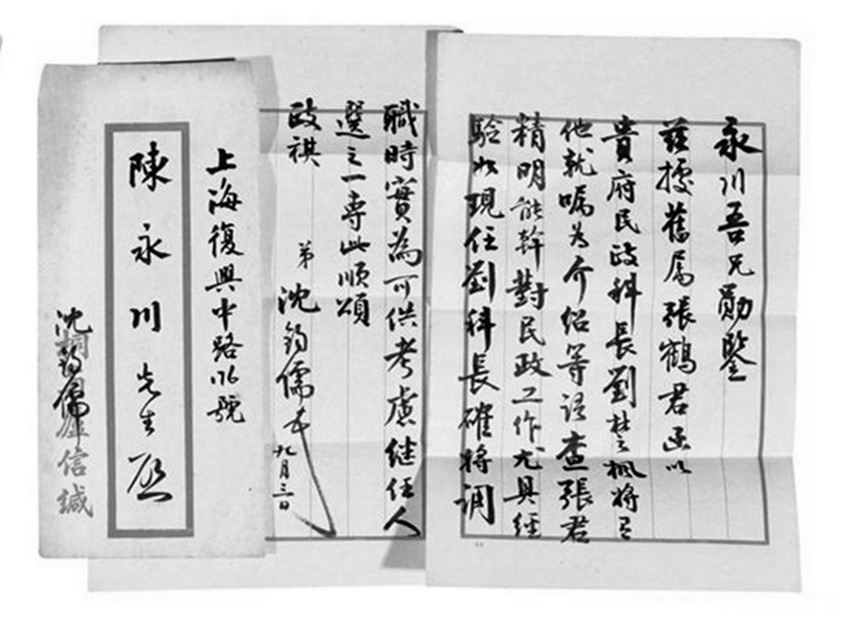 永川吾兄勛鑒
茲據舊屬張鶴君函以
貴府民政科長劉楚楓將有
他就囑為介紹等語查張君
精明能幹對民政工作尤具經
驗如現任劉科長確將調
職時實為可供考慮繼任人
選之一專此順頌
政祺
弟 沈鈞儒
九月三日
上海復興中路
號
陳永川先生啟
沈鈞儒
信緘